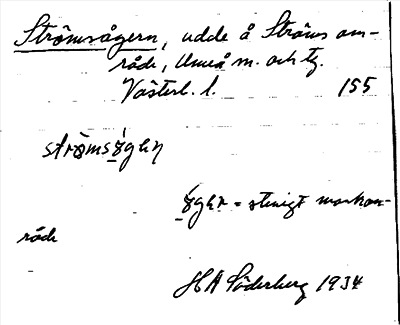 Strömsågern, udde å Ströms om-
råde, Umeå m. och tg.
Västerb. l. 155
ströms
= stenigt markom-
råde
HA Söderberg 1934